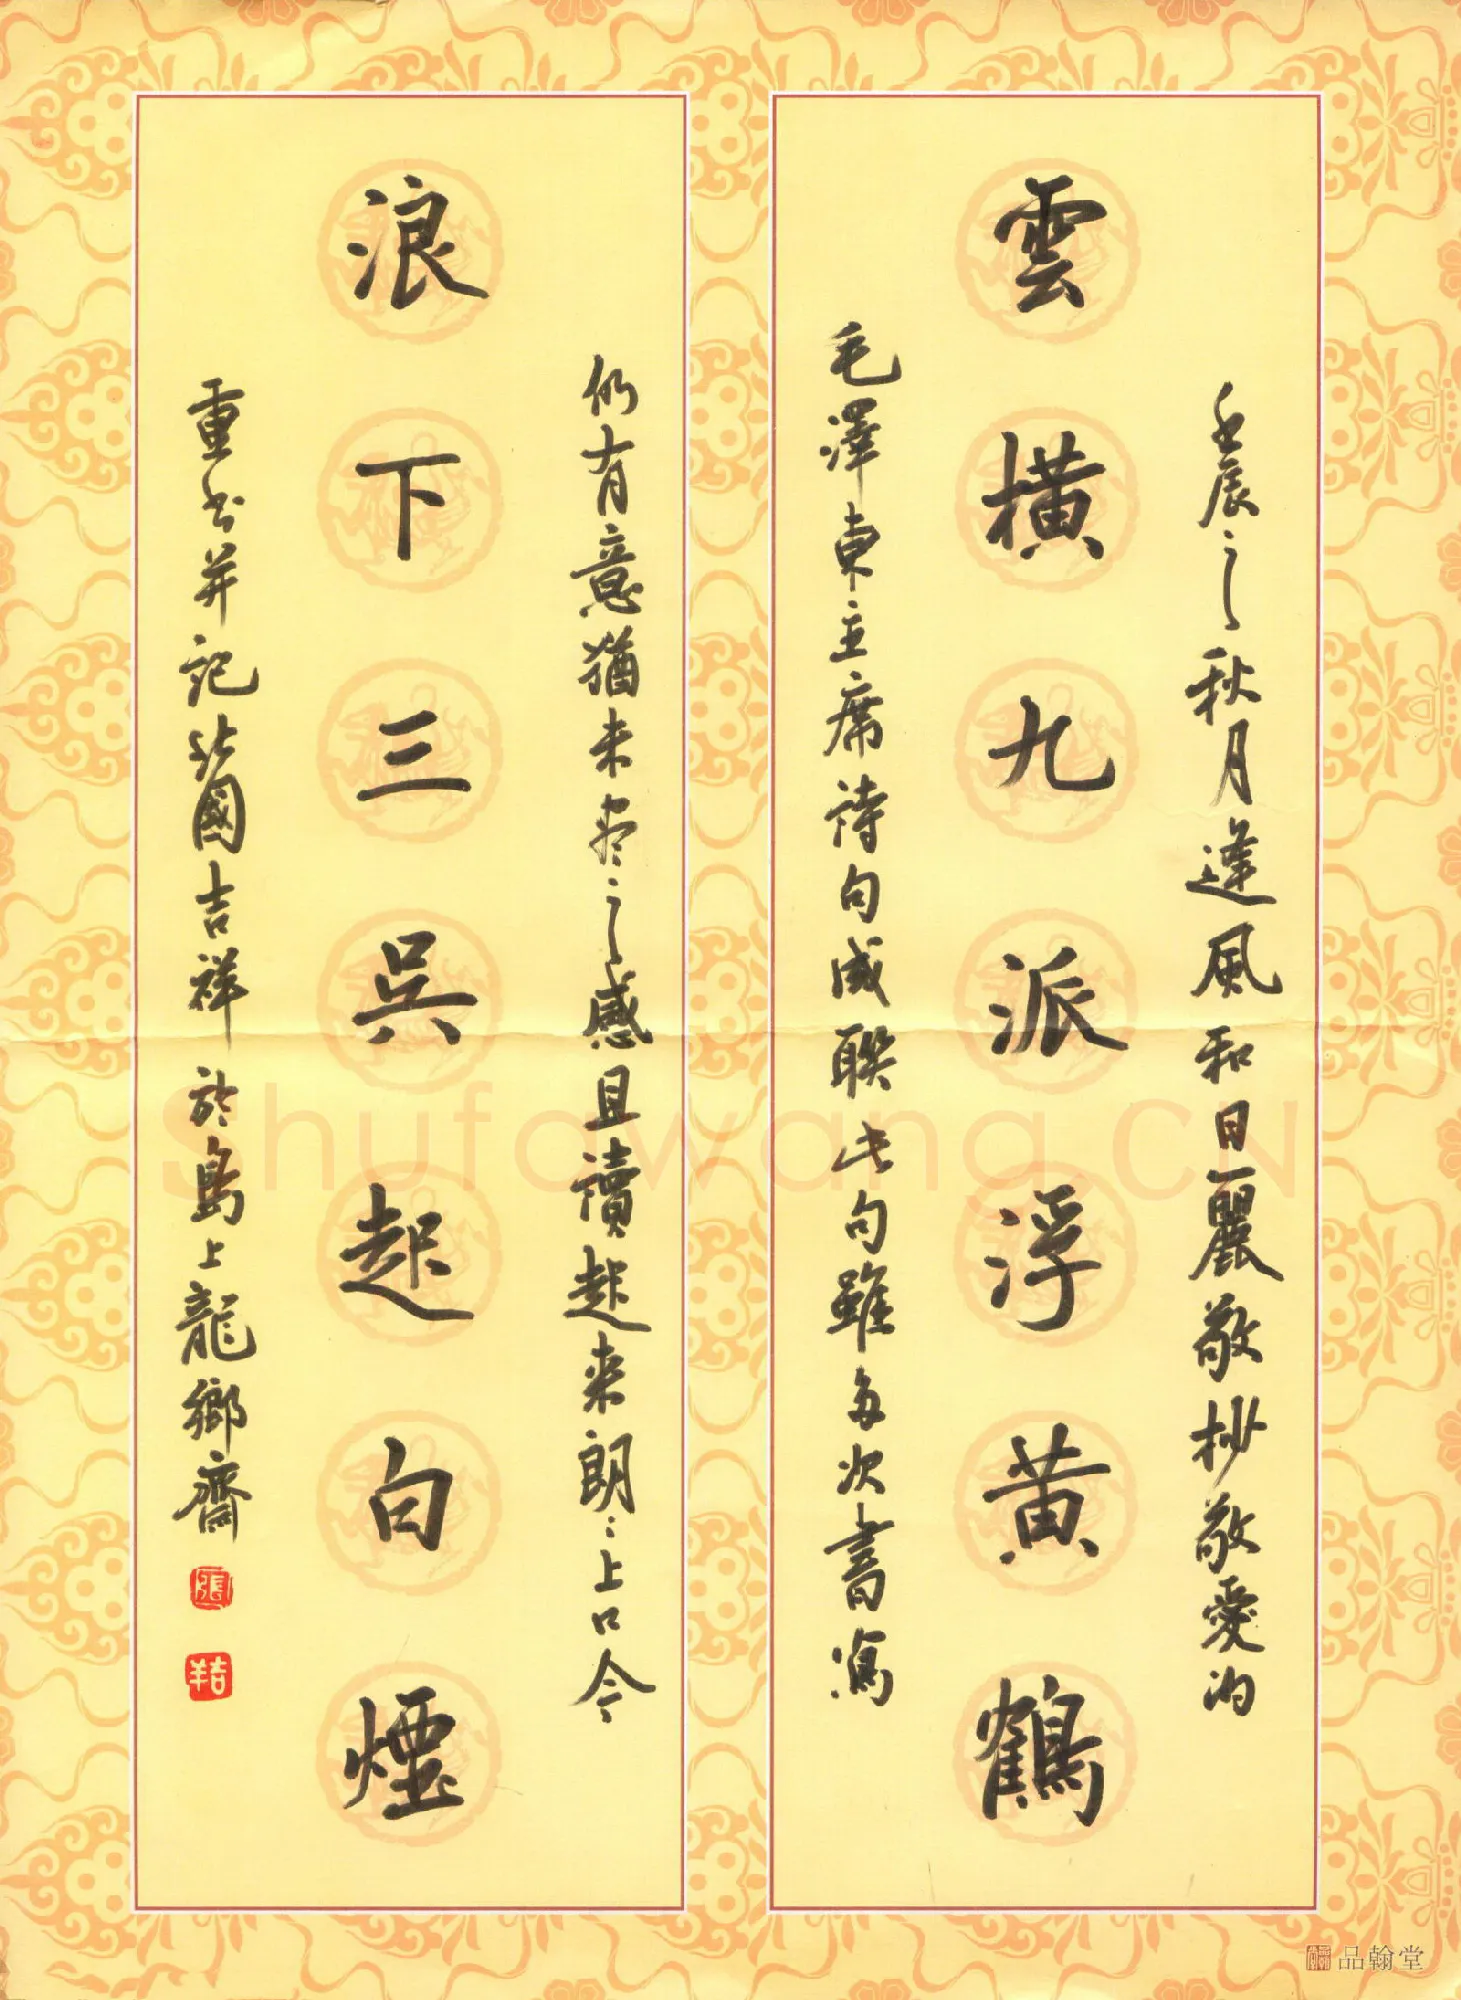 壬辰之秋月逢風和日麗敬抄敬愛的
雲橫九派浮黄鶴
毛澤東主席詩句成聯此句雖多次書寫
仍有意猶未尽之感且讀起来朗〻上口今
浪下三吳起白煙
重书并記 北國吉祥 於島上龍鄉齋
張
吉羊
Shufawang.CN
品翰堂